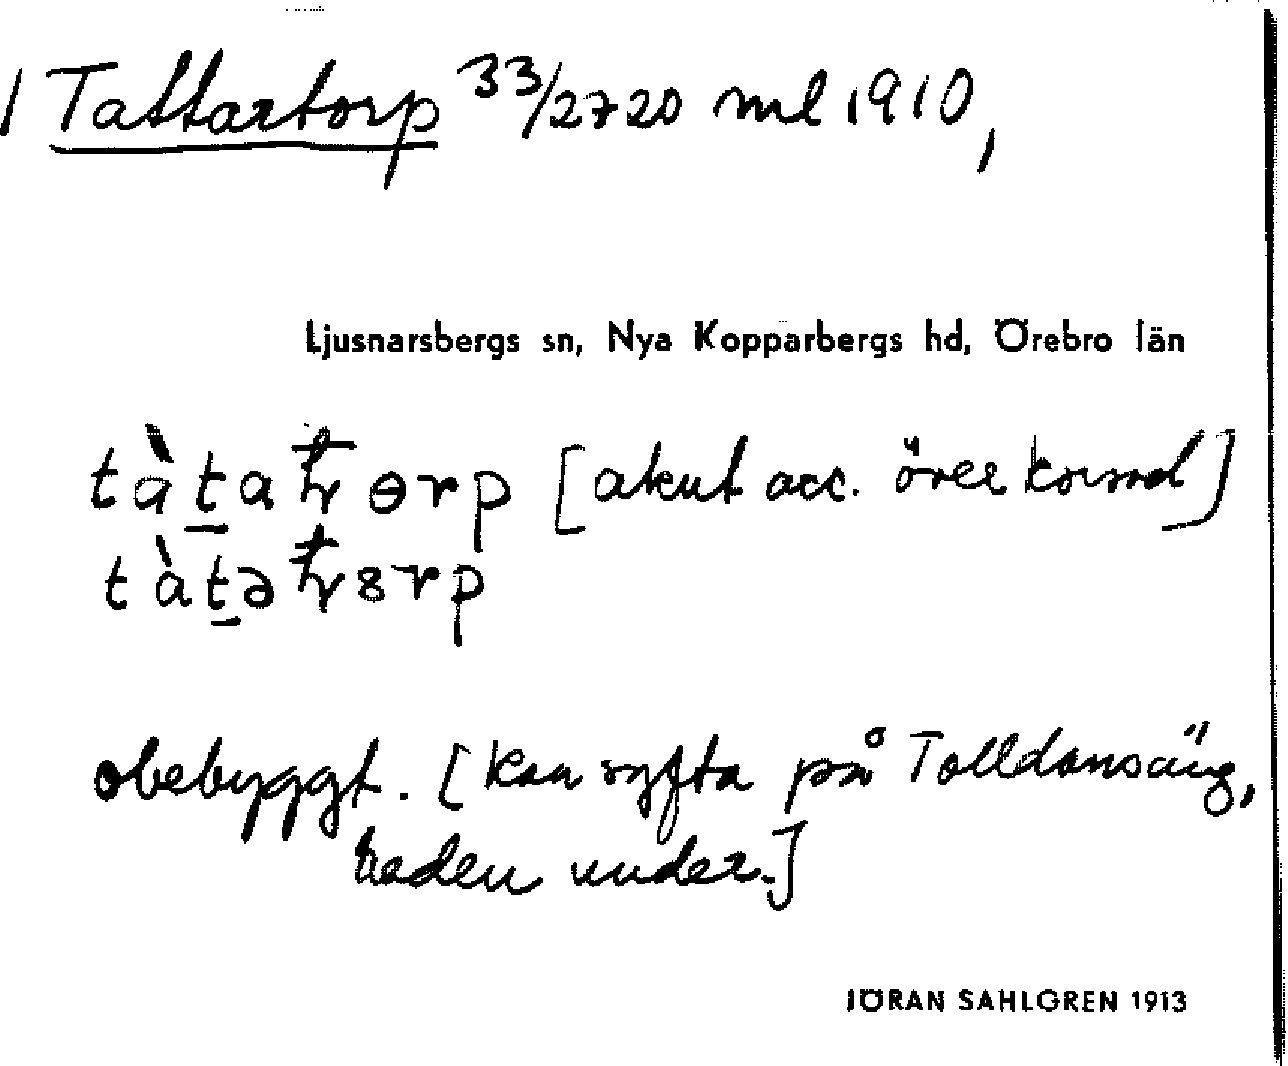 Tattartorp 33/2720 ml 1910,
Ljusnarsbergs sn, Nya Kopparbergs hd, Örebro län
tàt̠a ꞧɵrp [akut acc. över korsad]
tàt̠ə ꞧ8rp
obebyggt. [kan syfta på Talldansäng,
raden under.]
JÖRAN SAHLGREN 1913